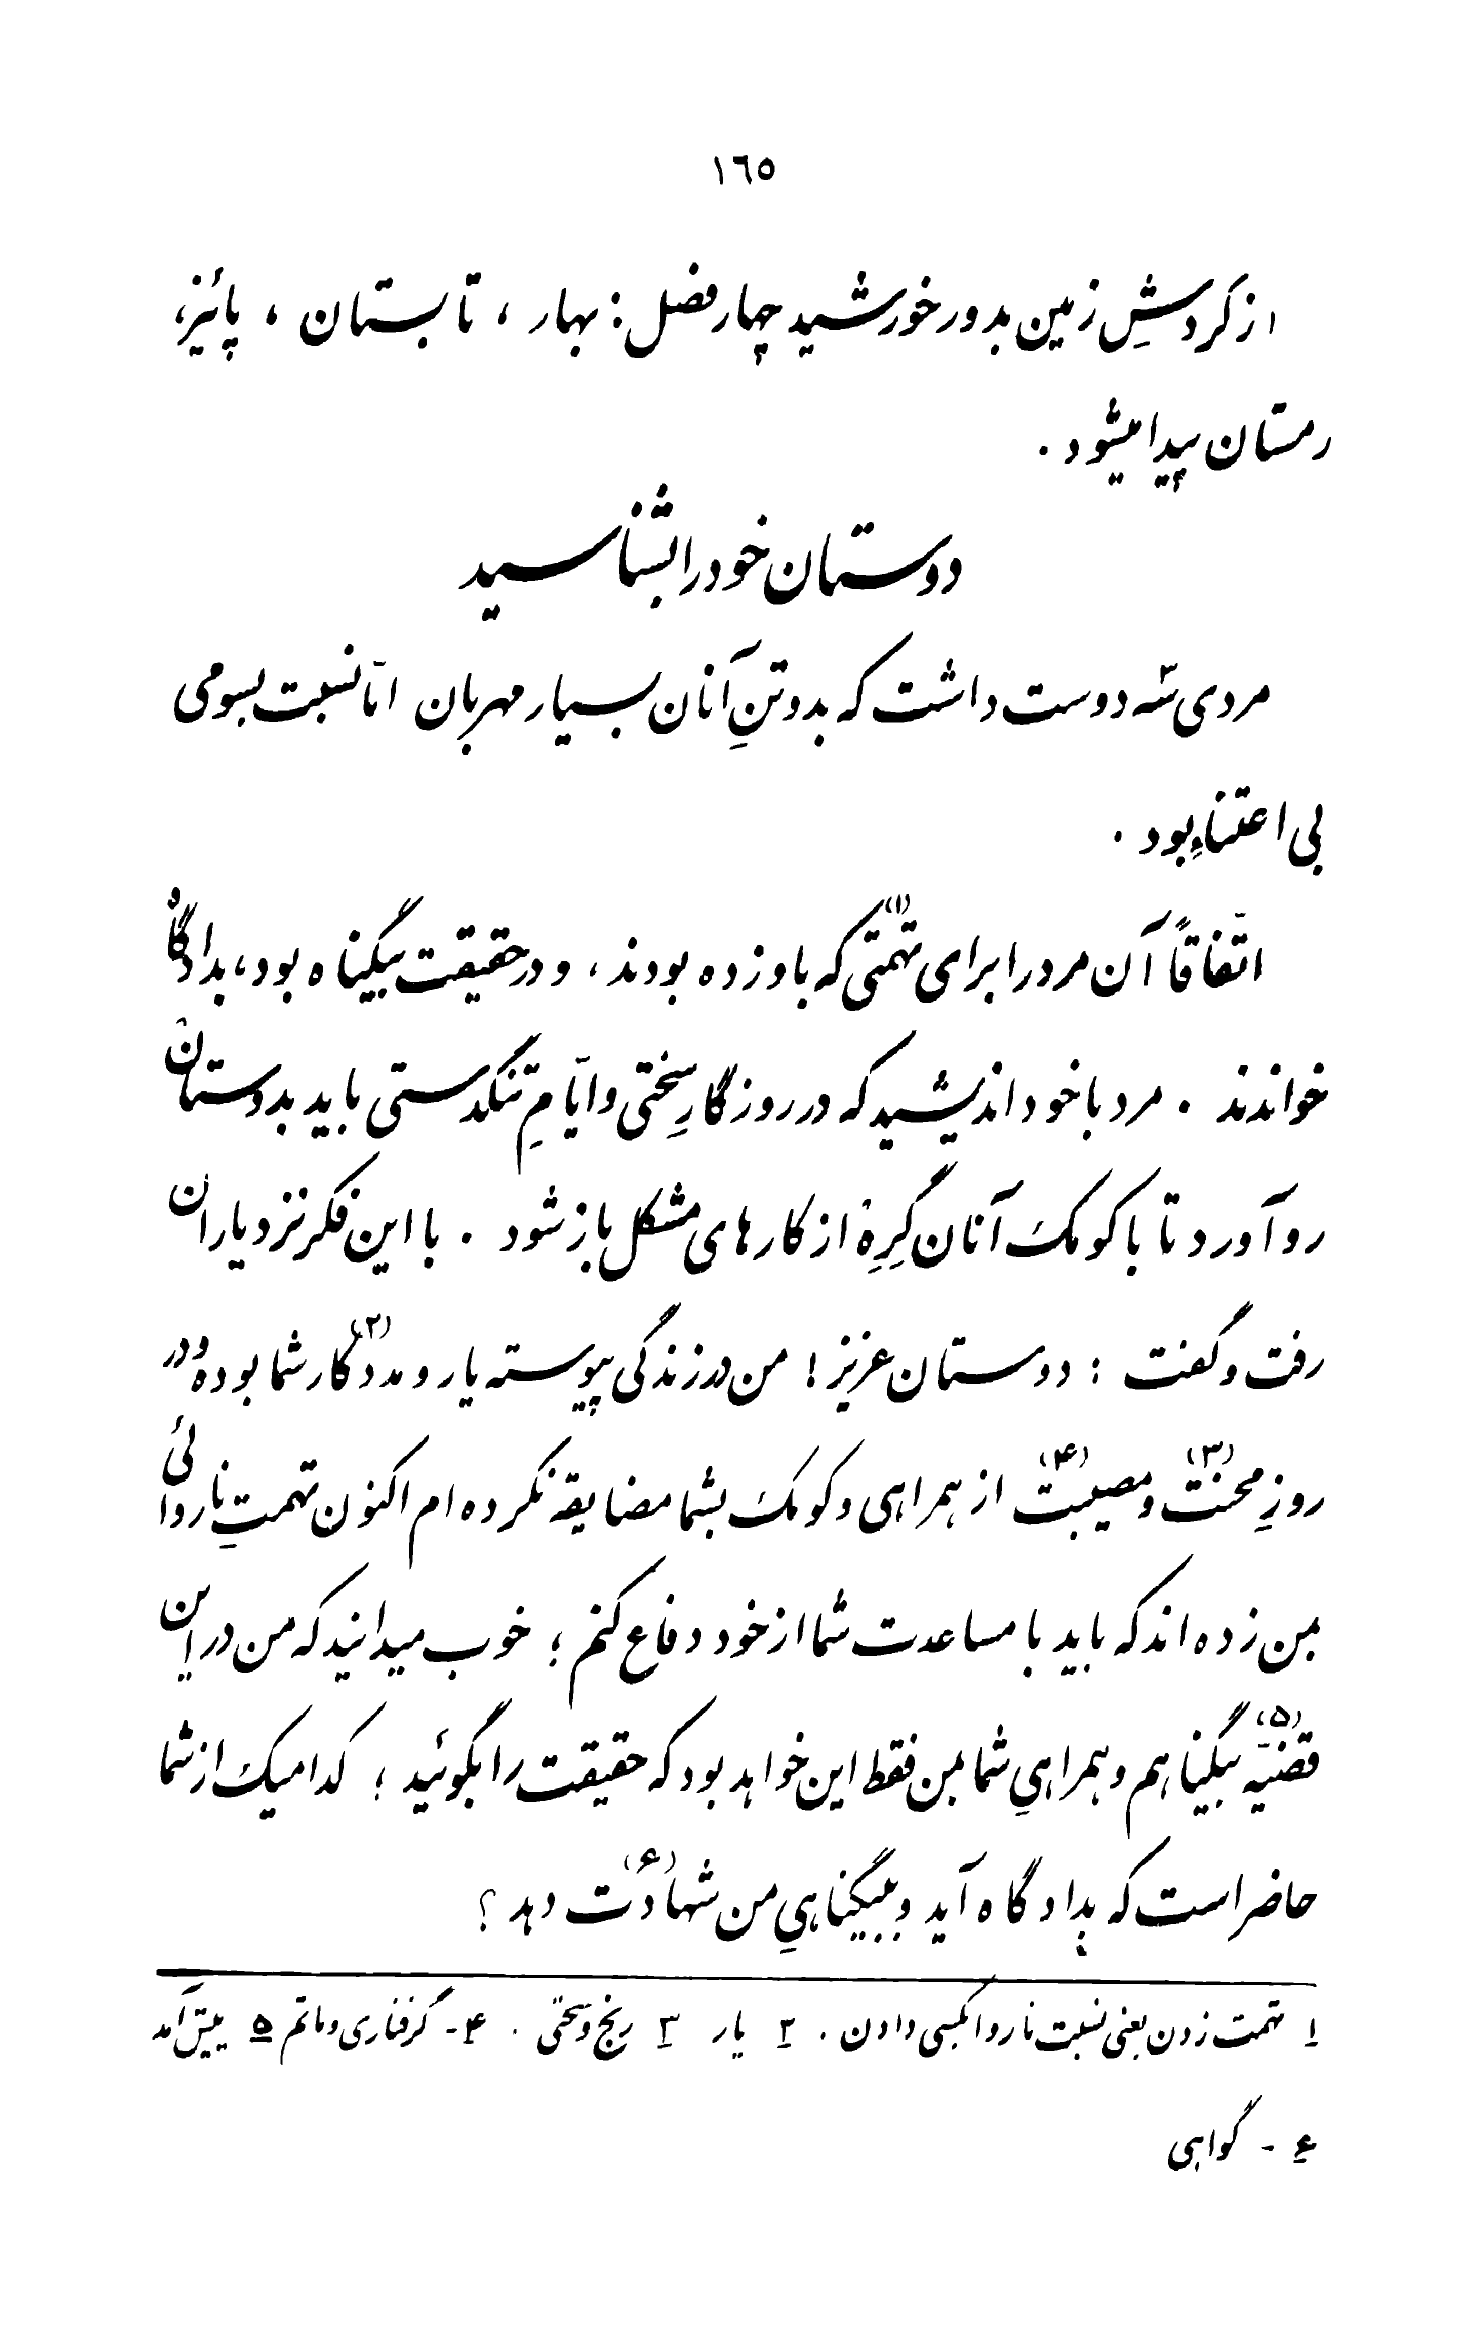 ١٦٥
از گردشِ زمین بدور خورشید چهار فصل : بهار ، تابستان ، پائیز،
رمستان پیدا میشود .
دوستان خود را بشناسید
مردی سه دوست داشت که بدو تنِ آنان بسیار مهربان امّا نسبت بسومی
بی اعتناء بود .
اتّفاقاً آن مرد را برای تهمتی (۱) که باو زده بودند ، و در حقیقت بیگناه بود ، بدادگاه
خواندند . مرد با خود اندیشید که در روزگارِ سختی و ایّامِ تنگدستی باید بدوستان
رو آورد تا با کومک آنان گِرِه از کارهای مشکل باز شود . با این فکر نزد یاران
رفت و گفت : دوستان عزیز ! من در زندگی پیوسته یار و مددکار (۲) شما بوده و در
روزِ محنت (۳) و مصیبت (۴) از همراهی و کومک بشما مضایقه نکرده ام اکنون تهمتِ ناروائی
بمن زده اند که باید با مساعدت شما از خود دفاع کنم ؛ خوب میدانید که من در این
قضیّه (۵) بیگناهم و همراهیِ شما بمن فقط این خواهد بود که حقیقت را بگوئید ؛ کدامیک از شما
حاضر است که بدادگاه آید و ببیگناهیِ من شهادت (۶) دهد ؟
۱ تهمت زدن یعنی نسبت ناروا بکسی دادن . ۲ یار ۳ رنج و سختی . ۴- گرفتاری و ماتم ۵ پیش آمد
۶ - گواهی